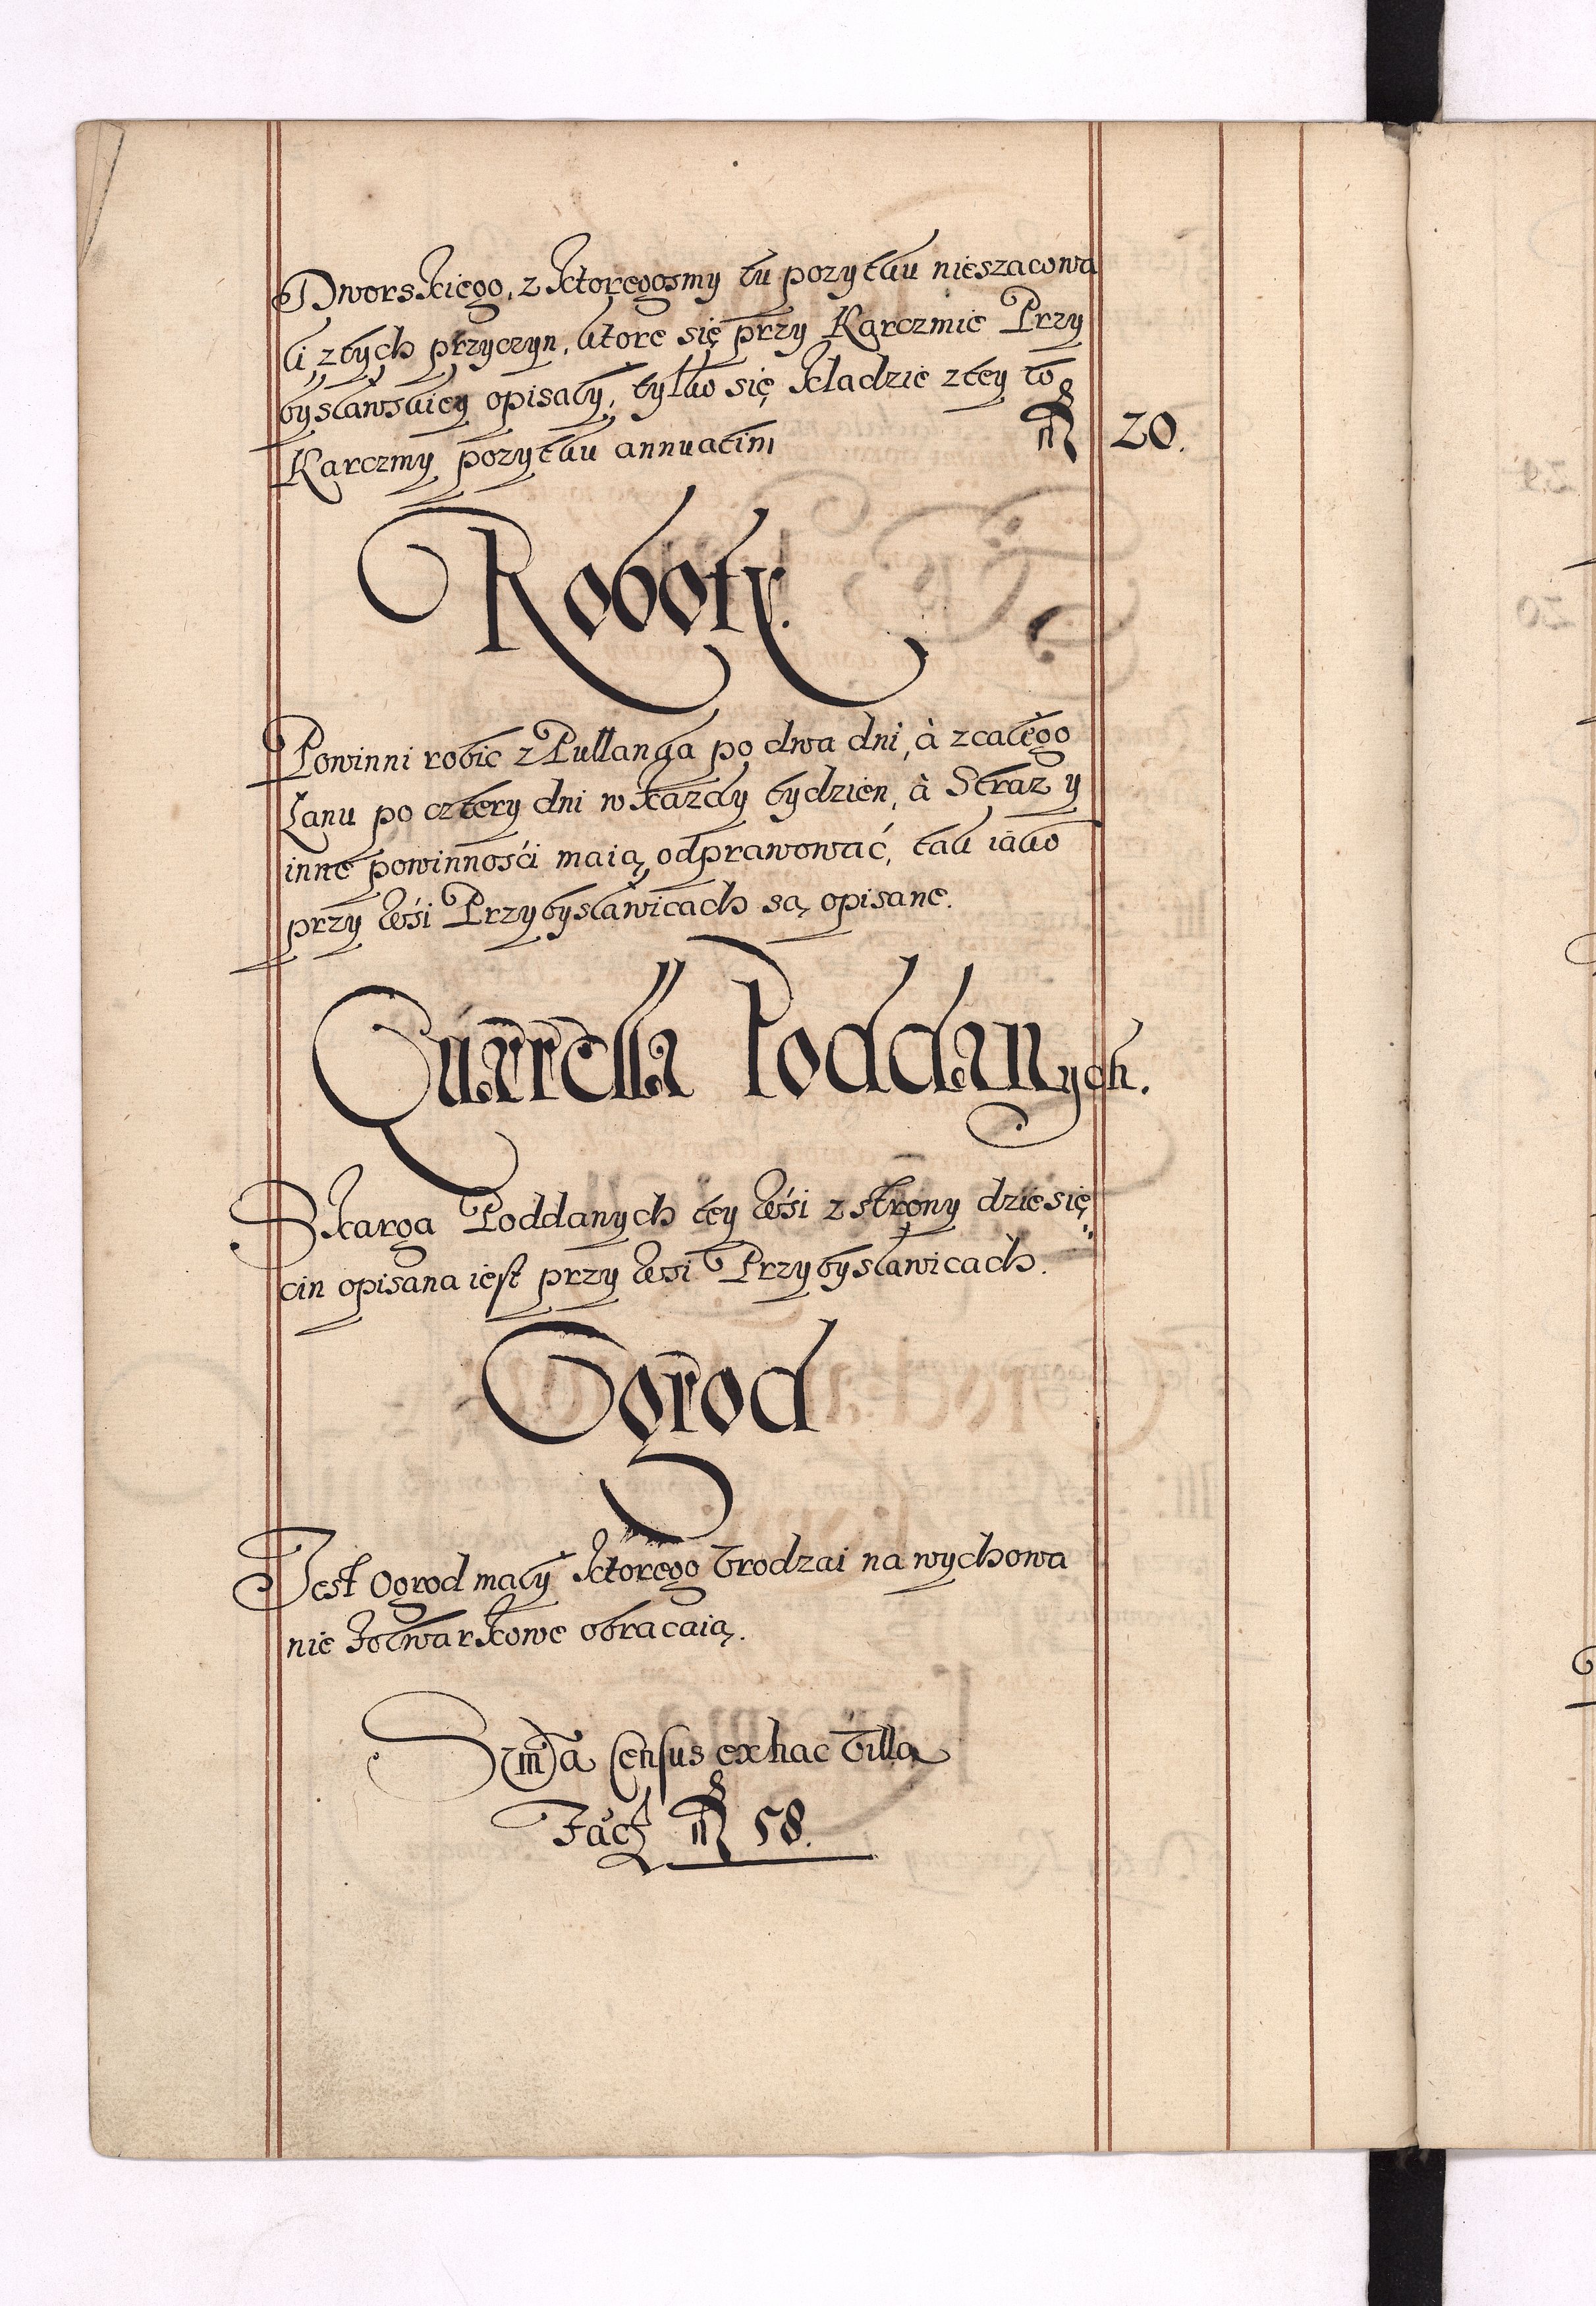 Dworskiego, z ktoregosmy tu pozytku nieszacowa
li, z tych przyczyn, ktore się przy Karczmie Przy
bysławskiey opisały, tylko się kładzie z tey to
Karczmy pozytku annuatim 20.
Roboty.
Powinni robic z Pułłanka po dwa dni, à z całego
Łanu po cztery dni w kazdy tydzien, à Straz y
inne powinnośći maią odprawować, tak iako
przy Wśi Przybysławicach są opisane.
Quærella Poddanych.
Skarga Poddanych tey Wśi z strony dziesię
cin opisana iest przy Wsi Przybysławicach.
Ogrod
Jest Ogrod mały ktorego Vrodzai na wychowa
nie Folwarkowe obracaią.
Sum̃a Census ex hac Villa
Facit 58.